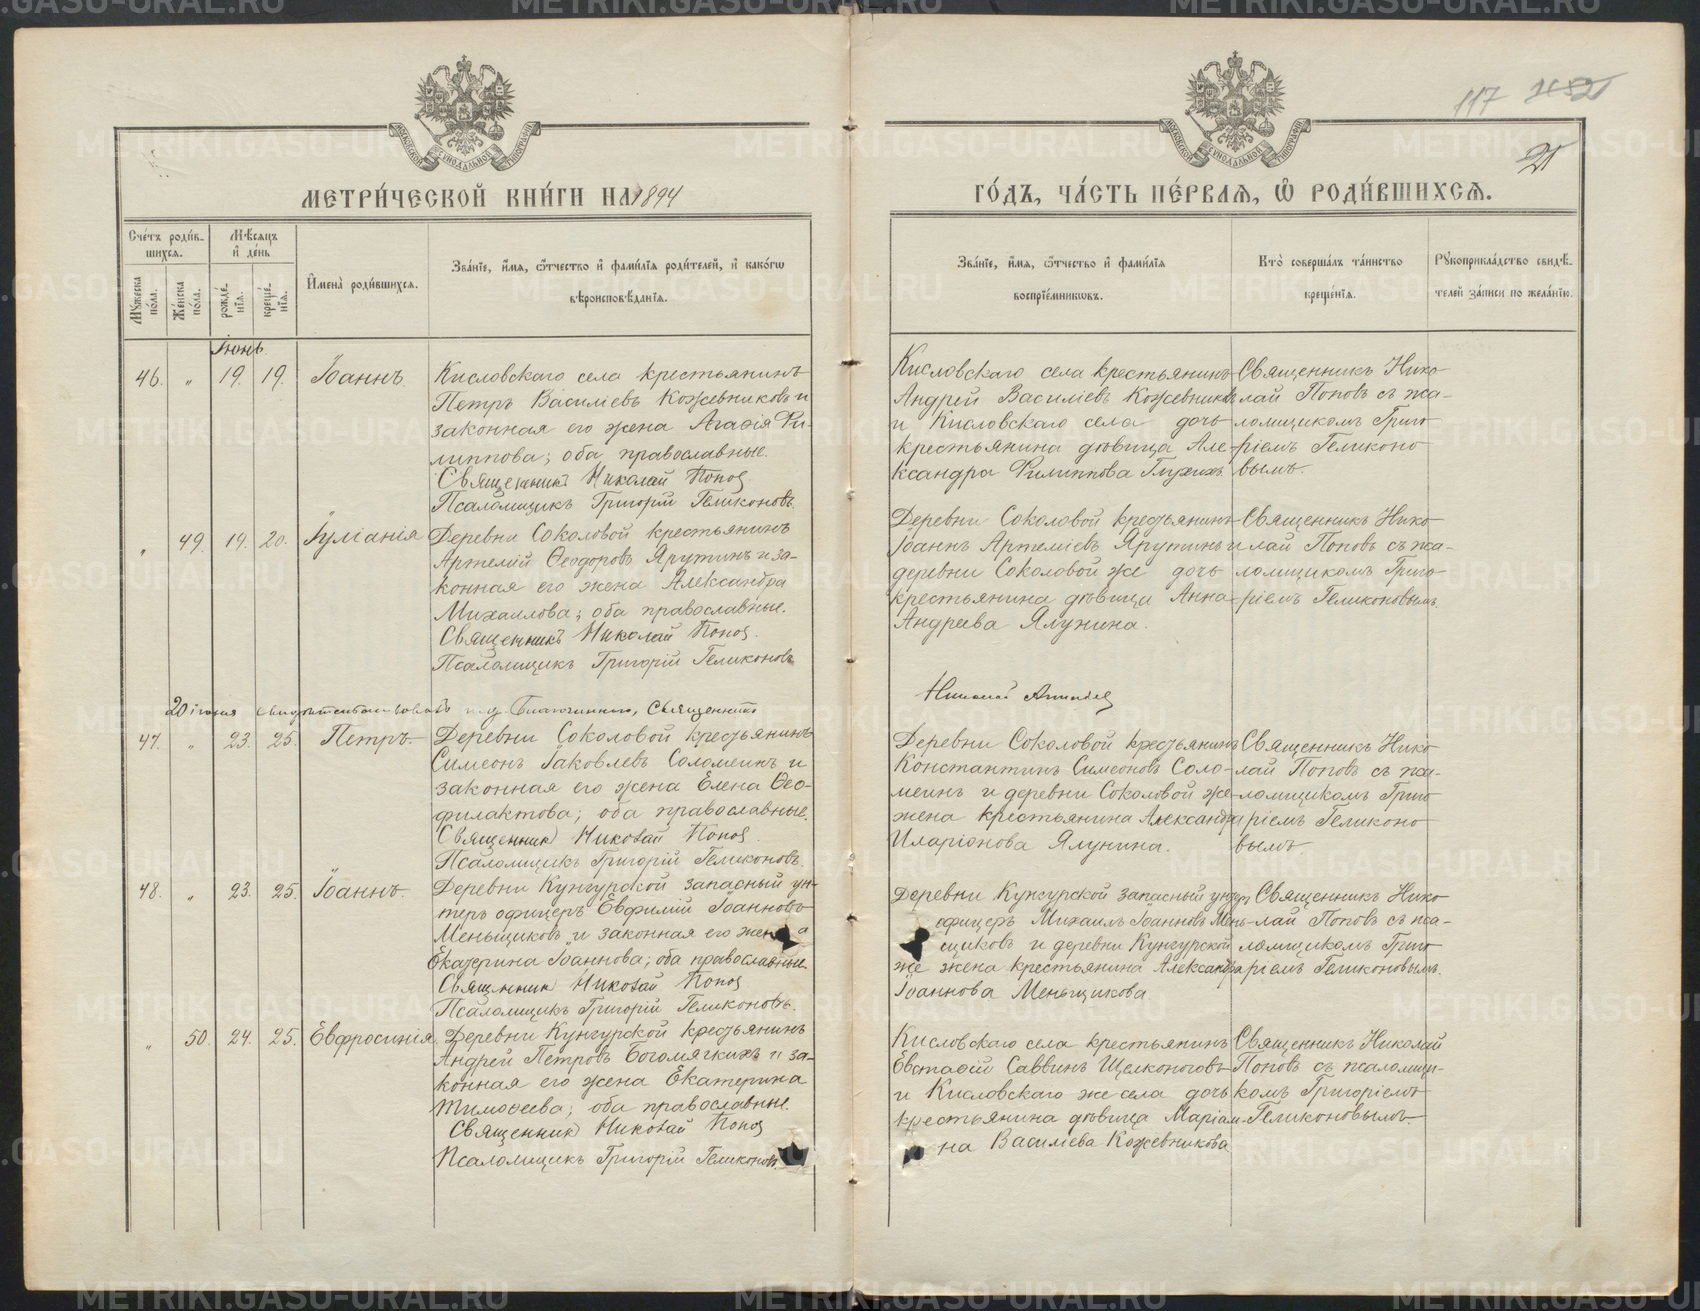 117
21
МОСКОВСКОЙ СѴНОДАЛЬНОЙ ТИПОГРАФІИ
МОСКОВСКОЙ СѴНОДАЛЬНОЙ ТИПОГРАФІИ
МЕТРИ́ЧЕСКОЙ КНИ́ГИ НА 1894
ГО́ДЪ, ЧА́СТЬ ПЕ́РВАЯ, Ѿ РОДИ́ВШИХСЯ.
Сче́тъ роди́в-
шихся.
Мѣ́сяцъ
и҆ де́нь
Мꙋжеска по́ла.
Же́нска по́ла.
рожде́нїя.
креще́нїя.
И҆мена̀ роди́вшихся.
Зва́нїе, и҆́мя, ѻ҆́тчество и҆ фами́лїя роди́телей, и҆ како́гѡ
вѣроисповѣ́данїя.
Зва́нїе, и҆́мя, ѻ҆́тчество и҆ фами́лїя
воспрїе́мникѡвъ.
Кто̀ соверша́лъ та́инство
креще́нїя.
Рꙋкоприкла́дство свидѣ́-
телей за́писи по жела́нїю.
Іюнь
46. „ 19. 19. Іоаннъ
Кисловскаго села крестьянинъ
Петръ Василіевъ Кожевниковъ и
законная его жена Агафія Фи-
липпова; оба православные.
Священникъ Николай Поповъ
Псаломщикъ Григорій Геликоновъ.
Кисловскаго села крестьянинъ
Андрей Василіевъ Кожевниковъ
и Кисловскаго села дочь
крестьянина дѣвица Але-
ксандра Филиппова Глухихъ.
Священникъ Нико-
лай Поповъ съ пса-
ломщикомъ Григо-
ріемъ Геликоно-
вымъ.
„ 49. 19. 20. Іуліанія
Деревни Соколовой крестьянинъ
Артемій Ѳеодоровъ Ярутинъ и за-
конная его жена Александра
Михаилова; оба православные.
Священникъ Николай Поповъ.
Псаломщикъ Григорій Геликоновъ
Деревни Соколовой крестьянинъ
Іоаннъ Артеміевъ Ярутинъ и
деревни Соколовой же дочь
крестьянина дѣвица Анна
Андреева Ялунина.
Священникъ Нико-
лай Поповъ съ пса-
ломщикомъ Григо-
ріемъ Геликоновымъ.
20 іюня свидѣтельствовалъ и. д. Благочиннаго, Священникъ
Николай
47. „ 23. 25. Петръ.
Деревни Соколовой крестьянинъ
Симеонъ Іаковлевъ Соломеинъ и
законная его жена Елена Ѳео-
филактова; оба православные.
Священникъ Николай Поповъ.
Псаломщикъ Григорій Геликоновъ.
Деревни Соколовой крестьянинъ
Константинъ Симеоновъ Соло-
меинъ и деревни Соколовой же
жена крестьянина Александра
Иларіонова Ялунина.
Священникъ Нико-
лай Поповъ съ пса-
ломщикомъ Григо-
ріемъ Геликоно-
вымъ
48. „ 23. 25. Іоаннъ.
Деревни Кунгурской запасный ун-
теръ офицеръ Евфимій Іоанновъ
Меньщиковъ и законная его жена
Екатерина Іоаннова; оба православные.
Священникъ Николай Поповъ
Псаломщикъ Григорій Геликоновъ.
Деревни Кунгурской запасный унтеръ
офицеръ Михаилъ Іоанновъ Мень-
щиковъ и деревни Кунгурской
же жена крестьянина Александра
Іоаннова Меньщикова
Священникъ Нико-
лай Поповъ съ пса-
ломщикомъ Григо-
ріемъ Геликоновымъ.
„ 50. 24. 25. Евфросинія.
Деревни Кунгурской крестьянинъ
Андрей Петровъ Богомягкихъ и за-
конная его жена Екатерина
Тимоѳеева; оба православные.
Священникъ Николай Поповъ
Псаломщикъ Григорій Геликоновъ.
Кисловскаго села крестьянинъ
Евстафій Саввинъ Щелконоговъ
и Кисловскаго же села дочь
крестьянина дѣвица Маріам-
на Василіева Кожевникова
Священникъ Николай
Поповъ съ псаломщи-
комъ Григоріемъ
Геликоновымъ.
METRIKI.GASO-URAL.RU